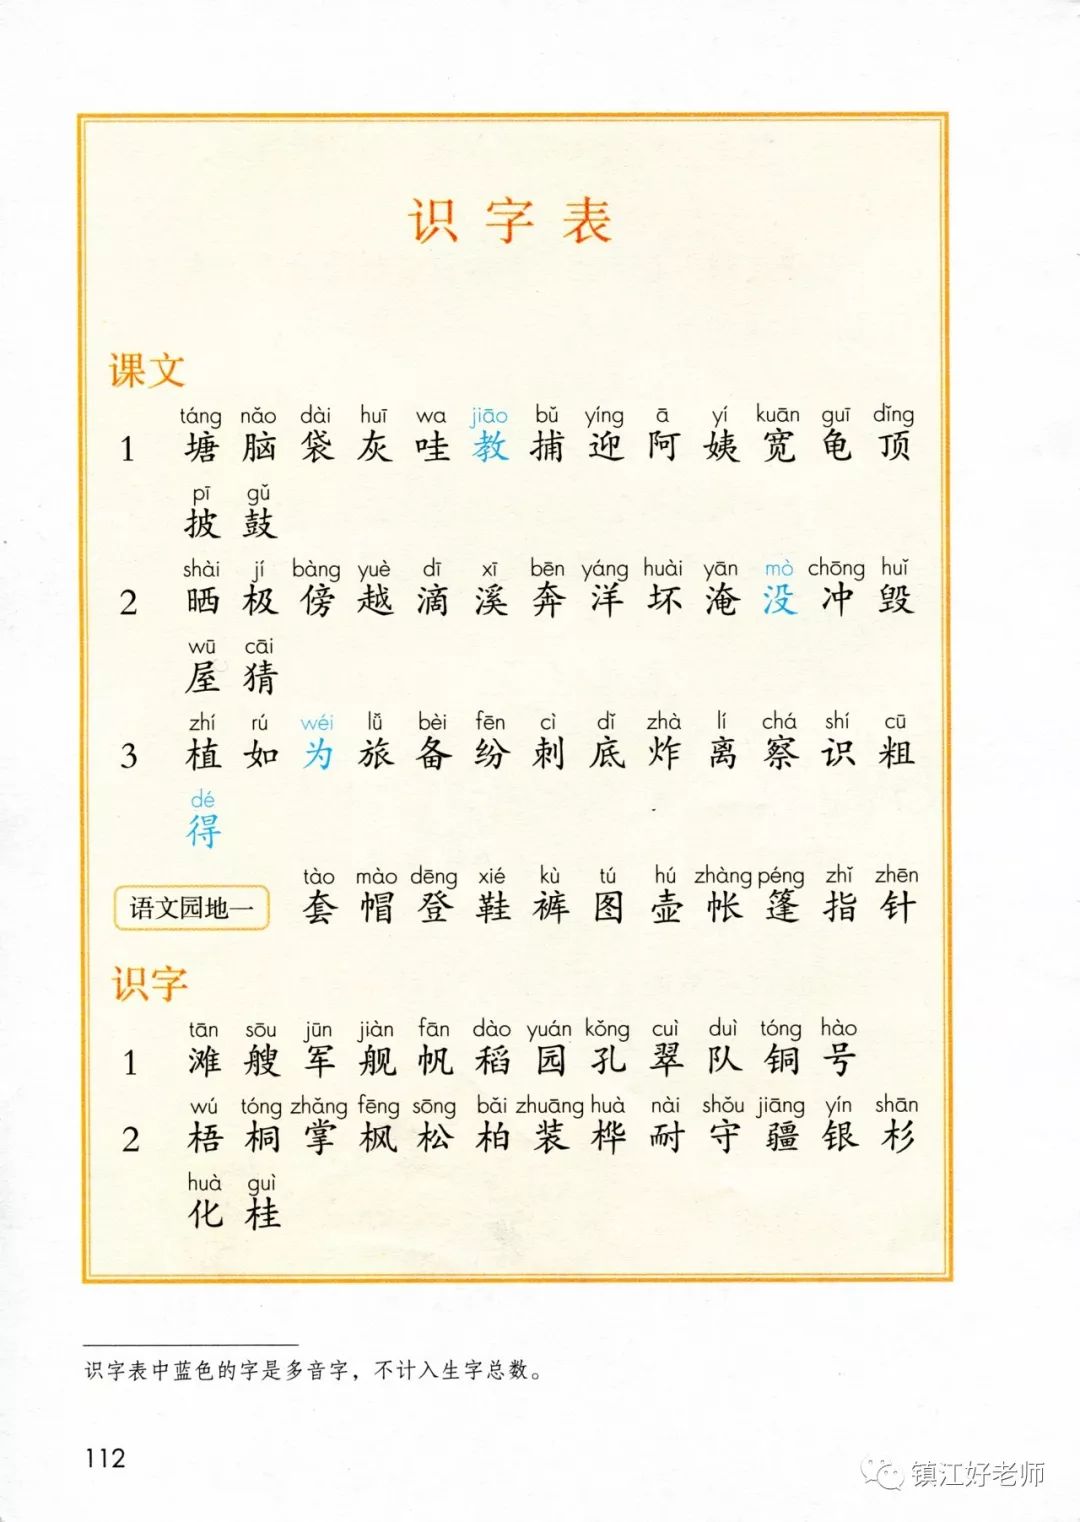 识字表
课文
táng nǎo dài huī wa jiāo bǔ yíng ā yí kuān guī dǐng
1 塘 脑 袋 灰 哇 教 捕 迎 阿 姨 宽 龟 顶
pī gǔ
披 鼓
shài jí bàng yuè dī xī bēn yáng huài yān mò chōng huǐ
2 晒 极 傍 越 滴 溪 奔 洋 坏 淹 没 冲 毁
wū cāi
屋 猜
zhí rú wéi lǚ bèi fēn cì dǐ zhà lí chá shí cū
3 植 如 为 旅 备 纷 刺 底 炸 离 察 识 粗
dé
得
tào mào dēng xié kù tú hú zhàng péng zhǐ zhēn
语文园地一 套 帽 登 鞋 裤 图 壶 帐 篷 指 针
识字
tān sōu jūn jiàn fān dào yuán kǒng cuì duì tóng hào
1 滩 艘 军 舰 帆 稻 园 孔 翠 队 铜 号
wú tóng zhǎng fēng sōng bǎi zhuāng huà nài shǒu jiāng yín shān
2 梧 桐 掌 枫 松 柏 装 桦 耐 守 疆 银 杉
huà guì
化 桂
识字表中蓝色的字是多音字，不计入生字总数。
112
镇江好老师